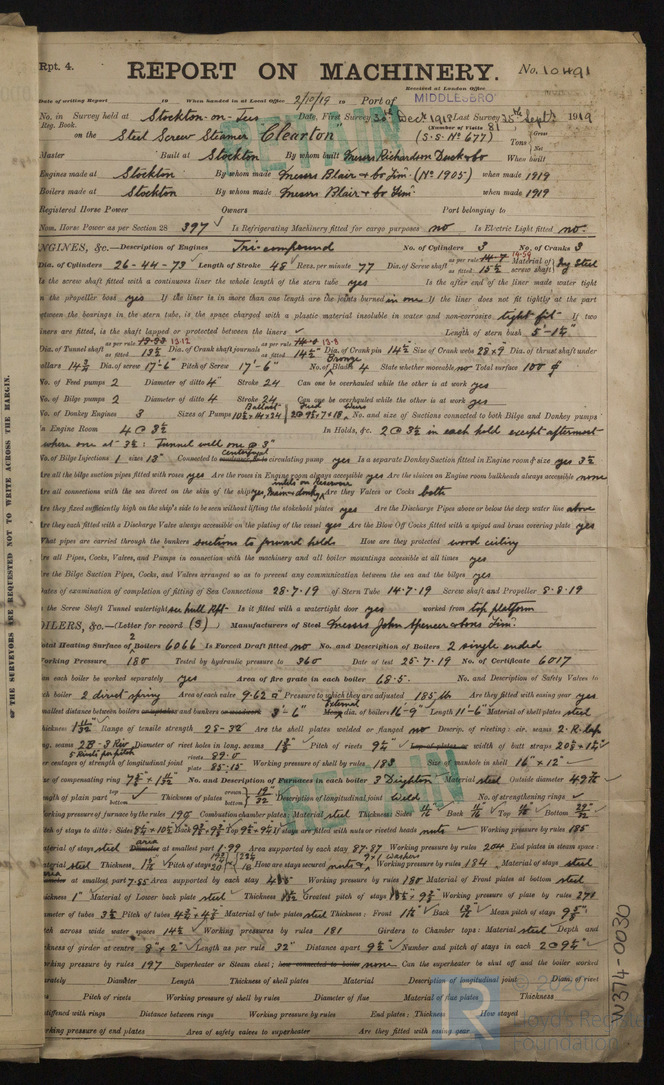 Rpt. 4.
REPORT ON MACHINERY.
No. 10491
Received at London Office
Date of writing Report 19 When handed in at Local Office 2/10/19 19 Port of MIDDLESBRO
No. in Survey held at Stockton-on-Tees Date, First Survey 30th Decr 1918 Last Survey 25th Septr 1919
Reg. Book. (Number of Visits 81)
on the Steel Screw Steamer "Clearton" (S.S. No 677) Tons Gross Net
Master Built at Stockton By whom built Messrs Richardson Duck & Co When built
Engines made at Stockton By whom made Messrs Blair & Co Lim. (No 1905) when made 1919
Boilers made at Stockton By whom made Messrs Blair & Co Lim. when made 1919
Registered Horse Power Owners Port belonging to
Nom. Horse Power as per Section 28 397 Is Refrigerating Machinery fitted for cargo purposes no Is Electric Light fitted no.
NGINES, &c.—Description of Engines Tri-compound No. of Cylinders 3 No. of Cranks 3
Dia. of Cylinders 26-44-73 Length of Stroke 48 Revs. per minute 77 Dia. of Screw shaft as per rule 14.7 14.59 as fitted 15½ Material of screw shaft Ing Steel
Is the screw shaft fitted with a continuous liner the whole length of the stern tube yes Is the after end of the liner made water tight
in the propeller boss yes If the liner is in more than one length are the joints burned in one If the liner does not fit tightly at the part
between the bearings in the stern tube, is the space charged with a plastic material insoluble in water and non-corrosive tight fit If two
liners are fitted, is the shaft lapped or protected between the liners ✓ Length of stern bush 5'-1½"
Dia. of Tunnel shaft as per rule 13.12 as fitted 13½ Dia. of Crank shaft journals as per rule 13.8 as fitted 14½ Dia. of Crank pin 14½ Size of Crank webs 28×9 Dia. of thrust shaft under
collars 14½ Dia. of screw 17'-6" Pitch of Screw 17'-6" No. of Blades 4 Bronze State whether moveable no Total surface 100 ф
No. of Feed pumps 2 Diameter of ditto 4" Stroke 24 Can one be overhauled while the other is at work yes
No. of Bilge pumps 2 Diameter of ditto 4 Stroke 24 Can one be overhauled while the other is at work yes
No. of Donkey Engines 3 Sizes of Pumps Ballast 10½×14×24 Feed No. and size of Suctions connected to both Bilge and Donkey pumps
In Engine Room 4 @ 3½ In Holds, &c. 2 @ 3½ in each hold except aftermost
where one at 3½: Tunnel well one @ 3"
No. of Bilge Injections 1 sizes 13" Connected to centrifugal circulating pump yes Is a separate Donkey Suction fitted in Engine room & size yes 3½
Are all the bilge suction pipes fitted with roses yes Are the roses in Engine room always accessible yes Are the sluices on Engine room bulkheads always accessible none
Are all connections with the sea direct on the skin of the ship yes, Main & donkey inlets on Reservoir Are they Valves or Cocks both
Are they fixed sufficiently high on the ship's side to be seen without lifting the stokehold plates yes Are the Discharge Pipes above or below the deep water line above
Are they each fitted with a Discharge Valve always accessible on the plating of the vessel yes Are the Blow Off Cocks fitted with a spigot and brass covering plate yes
What pipes are carried through the bunkers suctions to forward holds How are they protected wood ceiling
Are all Pipes, Cocks, Valves, and Pumps in connection with the machinery and all boiler mountings accessible at all times yes
Are the Bilge Suction Pipes, Cocks, and Valves arranged so as to prevent any communication between the sea and the bilges yes
Dates of examination of completion of fitting of Sea Connections 28.7.19 of Stern Tube 14.7.19 Screw shaft and Propeller 8.8.19
Is the Screw Shaft Tunnel watertight see hull Rpt. Is it fitted with a watertight door yes worked from top platform
OILERS, &c.—(Letter for record (S)) Manufacturers of Steel Messrs John Spencer & Sons Lim.
Total Heating Surface of 2 Boilers 6066 Is Forced Draft fitted no No. and Description of Boilers 2 single ended
Working Pressure 180 Tested by hydraulic pressure to 360 Date of test 25.7.19 No. of Certificate 6017
Can each boiler be worked separately yes Area of fire grate in each boiler 68.5. No. and Description of Safety Valves to
each boiler 2 direct spring Area of each valve 9.62 Pressure to which they are adjusted 185 lb Are they fitted with easing gear yes
Smallest distance between boilers and bunkers 3'-6" External dia. of boilers 16'-9" Length 11'-6" Material of shell plates steel
Thickness 1 11/32 Range of tensile strength 28-32 Are the shell plates welded or flanged no Descrip. of riveting: cir. seams 2. R. lap
long. seams 2B-3 Riv Diameter of rivet holes in long. seams Pitch of rivets width of butt straps
Per centages of strength of longitudinal joint rivets 89.0 plate 85.15 Working pressure of shell by rules 183 Size of manhole in shell 16"×12"
Size of compensating ring No. and Description of Furnaces in each boiler 3 Deighton Material steel Outside diameter
Length of plain part top bottom Thickness of plates crown bottom 19/32 Description of longitudinal joint weld No. of strengthening rings
Working pressure of furnace by the rules 190 Combustion chamber plates: Material steel Thickness: Sides 11/16 Back 11/16 Top 11/16 Bottom
Pitch of stays to ditto: Sides Back Top If stays are fitted with nuts or riveted heads nuts Working pressure by rules 185
Material of stays steel area at smallest part 1.99 Area supported by each stay 87.87 Working pressure by rules 204 End plates in steam space:
Material steel Thickness Pitch of stays How are stays secured nuts & washers Working pressure by rules 184 Material of stays steel
Area at smallest part 7.85 Area supported by each stay Working pressure by rules 180 Material of Front plates at bottom steel
Thickness 1" Material of Lower back plate steel Thickness Greatest pitch of stays Working pressure of plate by rules 271
Diameter of tubes 3½ Pitch of tubes Material of tube plates steel Thickness: Front Back Mean pitch of stays
Pitch across wide water spaces 14½ Working pressures by rules 181 Girders to Chamber tops: Material steel Depth and
thickness of girder at centre 8"×2" Length as per rule 32" Distance apart 9½" Number and pitch of stays in each 2 @ 9½"
Working pressure by rules 197 Superheater or Steam chest; how connected to boiler none Can the superheater be shut off and the boiler worked
separately Diameter Length Thickness of shell plates Material Description of longitudinal joint Diam. of rivet
Pitch of rivets Working pressure of shell by rules Diameter of flue Material of flue plates Thickness
stiffened with rings Distance between rings Working pressure by rules End plates: Thickness How stayed
Working pressure of end plates Area of safety valves to superheater Are they fitted with easing gear
OF THE SURVEYORS ARE REQUESTED NOT TO WRITE ACROSS THE MARGIN.
W374-0030
RETAIN
RETAIN
© 2020
Lloyd's Register
Foundation